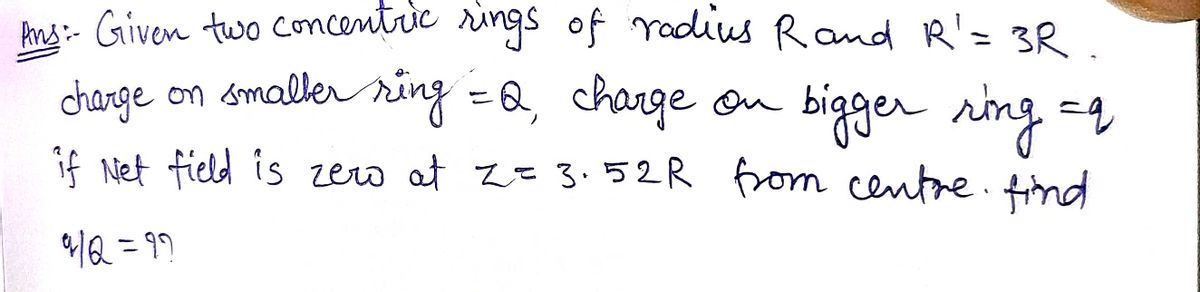 Ans:- Given two concentric rings of radius R and R' = 3R.
charge on smaller ring = Q, charge on bigger ring = q
if Net field is zero at z = 3.52R from centre. find
q/Q = ??